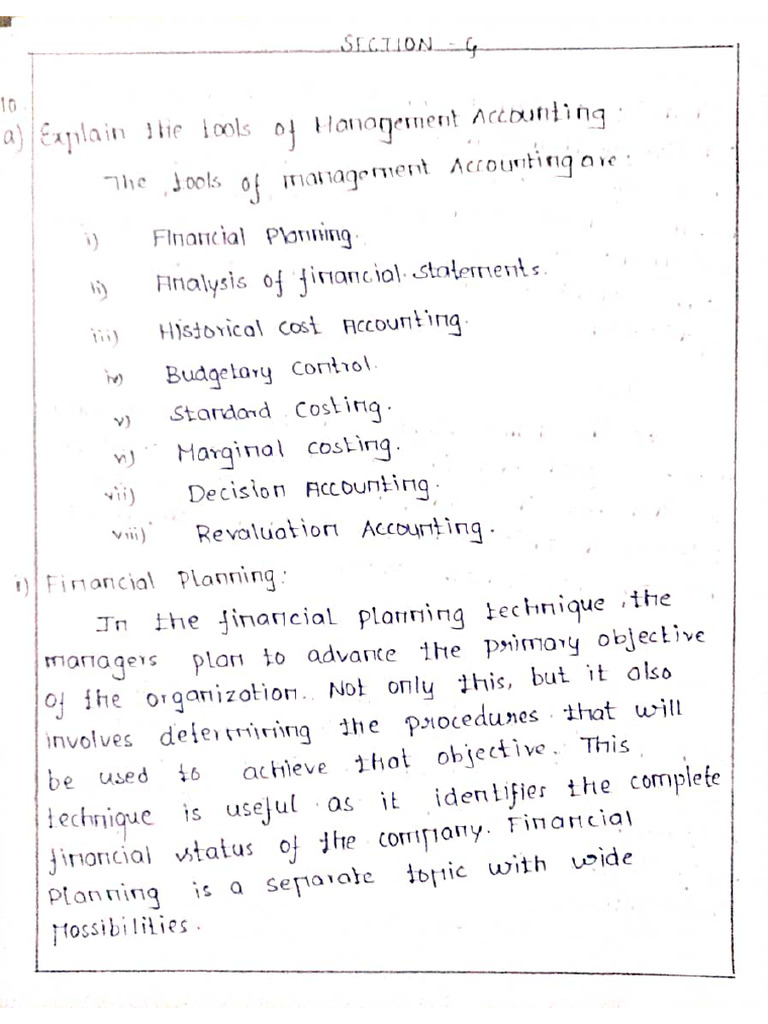 SECTION - G
10.
a) Explain the tools of Management Accounting:
The tools of management Accounting are:
i) Financial Planning.
ii) Analysis of financial statements.
iii) Historical cost Accounting.
iv) Budgetary control.
v) Standard Costing.
vi) Marginal costing.
vii) Decision Accounting.
viii) Revaluation Accounting.
i) Financial Planning:
In the financial planning technique, the
managers plan to advance the primary objective
of the organization. Not only this, but it also
involves determining the procedures that will
be used to achieve that objective. This
technique is useful as it identifies the complete
financial status of the company. Financial
Planning is a separate topic with wide
possibilities.